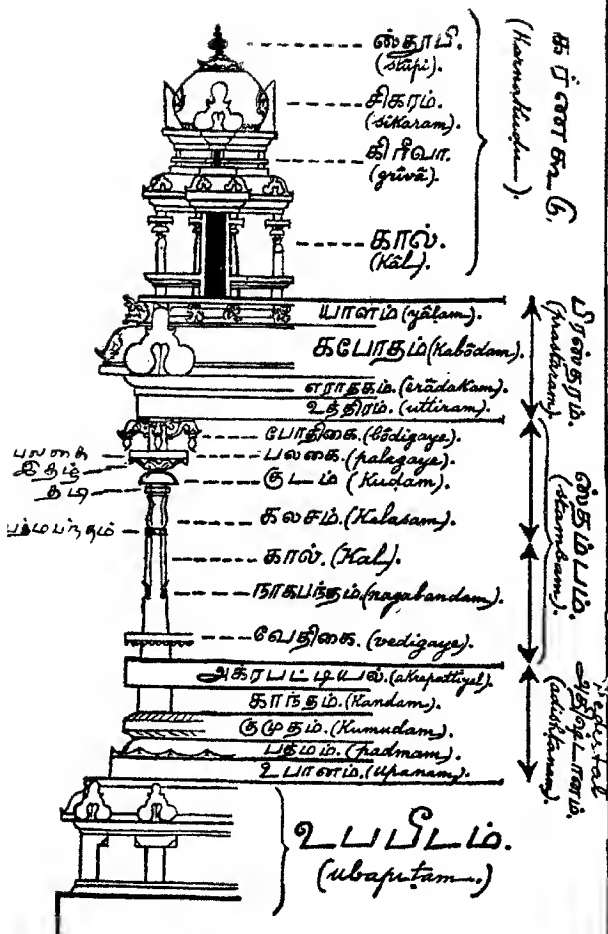 ஸ்தூபி.
(stúpi).
சிகரம்.
(sikaram).
கிரீவா.
(grîvâ).
கால்.
(Kâl).
கர்னகூடு.
(Karnakudu).
யாளம் (yâlam)
கபோதம் (Kabôdam).
எராதகம். (êrâdakam).
உத்திரம். (uttiram).
பிரஸ்தரம்.
(prastaram).
போதிகை. (bôdigaye).
பலகை
பலகை. (palagaye).
இதழ்
குடம் (Kuḍam)
தடி
கலசம். (Kalasam).
பத்மபந்தம்
கால். (Kal).
நாகபந்தம். (nagabandam).
வேதிகை. (vedigaye).
ஸ்தம்பம்.
(stambam).
அக்ரபட்டியல். (akrapattiyal).
காந்தம். (Kandam).
குமுதம். (Kumudam).
பத்மம். (padmam).
உபானம். (upanam).
Pedestal
அதிஷ்டானம்.
(adishtanam).
உபபிடம்.
(ubapitam.)